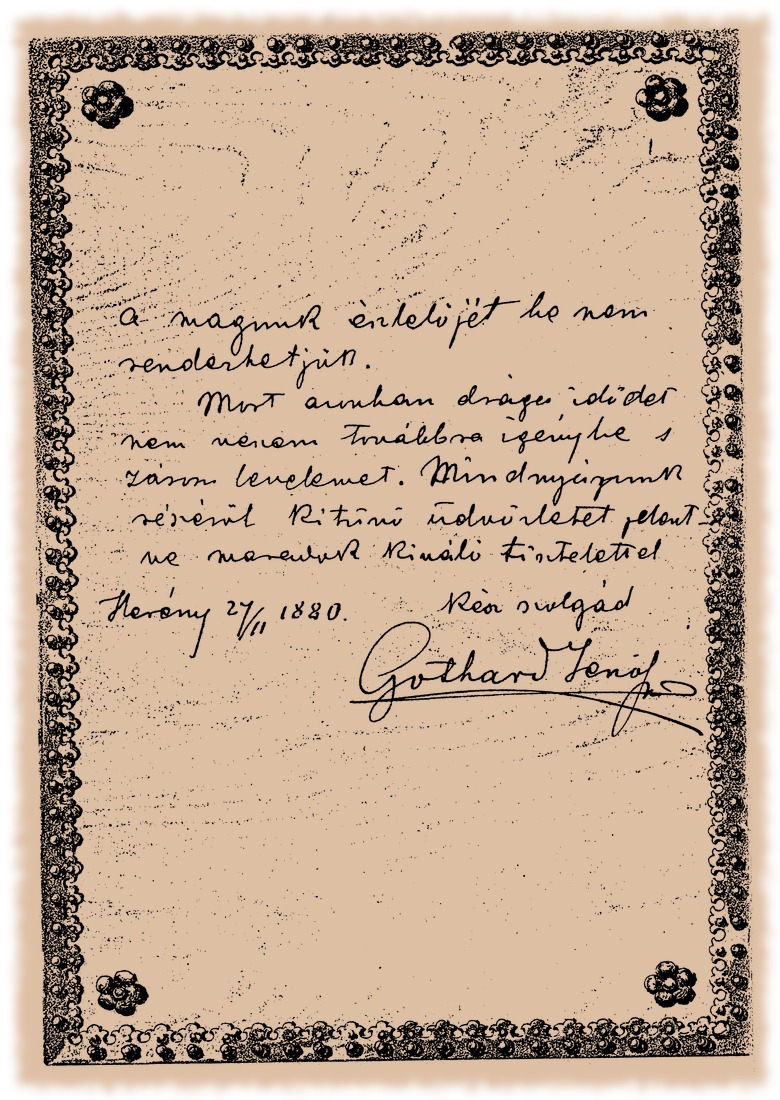 A magunk észlelőjét be nem
rendezhetjük.
Most azonban drága idődet
nem veszem továbbra igénybe s
zárom levelemet. Mindnyájunk
részéről kitünő üdvözletet jelent-
ve maradok kiváló tisztelettel
Herény 27/II 1880. kész szolgád
Gothard Jenő